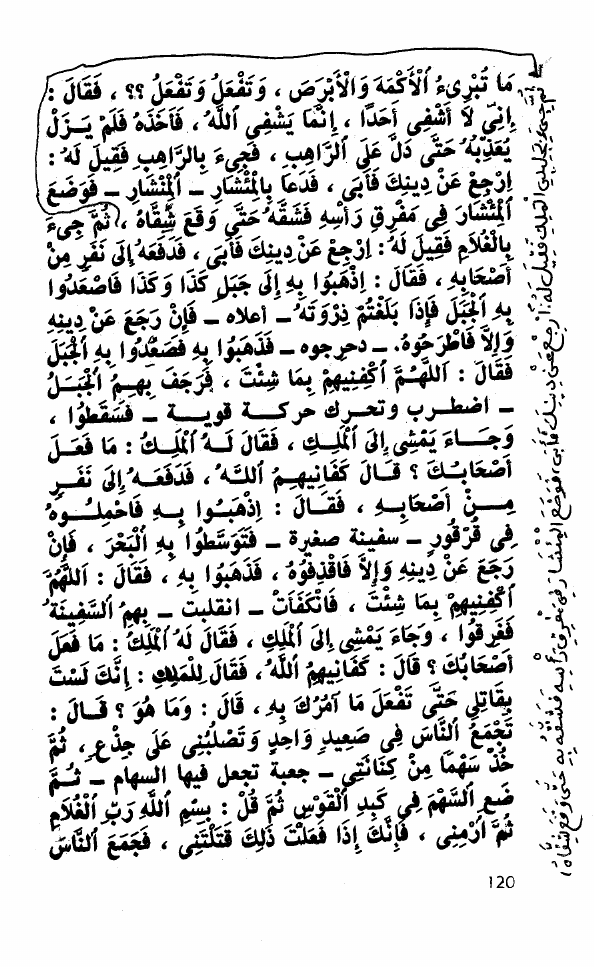 مَا تُبْرِىءُ ٱلْأَكْمَهَ وَالْأَبْرَصَ ، وَتَفْعَلُ وَتَفْعَلُ ؟؟ ، فَقَالَ :
إِنِّي لَا أَشْفِي أَحَدًا ، إِنَّمَا يَشْفِي ٱللَّهُ ، فَأَخَذَهُ فَلَمْ يَــزَلْ
يُعَذِّبُهُ حَتَّى دَلَّ عَلَى ٱلرَّاهِبِ ، فَجِيءَ بِالرَّاهِبِ فَقِيلَ لَهُ :
اِرْجِعْ عَنْ دِينِكَ فَأَبَى ، فَدَعَا بِالْمِئْشَارِ ــ ٱلْمِنْشَارِ ــ فَوَضَعَ
ٱلْمِئْشَارَ فِي مَفْرِقِ رَأْسِهِ فَشَقَّهُ حَتَّى وَقَعَ شِقَّاهُ ، ثُمَّ جِيءَ
بِالْغُلَامِ فَقِيلَ لَهُ : اِرْجِعْ عَنْ دِينِكَ فَأَبَى ، فَدَفَعَهُ إِلَى نَفَرٍ مِنْ
أَصْحَابِهِ ، فَقَالَ : اِذْهَبُوا بِهِ إِلَى جَبَلِ كَذَا وَكَذَا فَاصْعَدُوا
بِهِ ٱلْجَبَلَ فَإِذَا بَلَغْتُمْ ذِرْوَتَهُ ــ أعلاه ــ فَإِنْ رَجَعَ عَنْ دِينِهِ
وَإِلَّا فَاطْرَحُوهُ. ــ دحرجوه ــ فَذَهَبُوا بِهِ فَصَعَدُوا بِهِ ٱلْجَبَلَ
فَقَالَ : ٱللَّهُمَّ ٱكْفِنِيهِمْ بِمَا شِئْتَ ، فَرَجَفَ بِهِمُ ٱلْجَبَــلُ
ــ اضطــرب وتحــرك حركــة قويــة ــ فَسَقَطُوا ،
وَجَــاءَ يَمْشِي إِلَى ٱلْمَلِكِ ، فَقَالَ لَـهُ ٱلْمَلِكُ : مَا فَعَــلَ
أَصْحَابُــكَ ؟ قَـالَ كَفَانِيهِمُ ٱللَّـهُ ، فَدَفَعَــهُ إِلَى نَفَــرٍ
مِــنْ أَصْحَابِــهِ ، فَقَــالَ : اِذْهَبُــوا بِــهِ فَاحْمِلُــوهُ
فِي قُرْقُورٍ ــ سفينة صغيرة ــ فَتَوَسَّطُوا بِهِ ٱلْبَحْرَ ، فَإِنْ
رَجَعَ عَنْ دِينِهِ وَإِلَّا فَاقْذِفُوهُ ، فَذَهَبُوا بِهِ ، فَقَالَ : ٱللَّهُمَّ
ٱكْفِنِيهِمْ بِمَا شِئْتَ ، فَانْكَفَأَتْ ــ انقلبت ــ بِهِمُ ٱلسَّفِينَةُ
فَغَرِقُوا ، وَجَاءَ يَمْشِي إِلَى ٱلْمَلِكِ ، فَقَالَ لَهُ ٱلْمَلِكُ : مَا فَعَلَ
أَصْحَابُكَ ؟ قَالَ : كَفَانِيهِمُ ٱللَّهُ ، فَقَالَ لِلْمَلِكِ : إِنَّكَ لَسْتَ
بِقَاتِلِي حَتَّى تَفْعَلَ مَا آمُرُكَ بِهِ ، قَالَ : وَمَا هُوَ ؟ قَــالَ :
تَجْمَعُ ٱلنَّاسَ فِي صَعِيدٍ وَاحِدٍ وَتَصْلُبُنِي عَلَى جِذْعٍ ، ثُمَّ
خُذْ سَهْمًا مِنْ كِنَانَتِي ــ جعبة تجعل فيها السهام ــ ثُــمَّ
ضَعِ ٱلسَّهْمَ فِي كَبِدِ ٱلْقَوْسِ ثُمَّ قُلْ : بِسْمِ ٱللَّهِ رَبِّ ٱلْغُلَامِ
ثُمَّ ٱرْمِنِي ، فَإِنَّكَ إِذَا فَعَلْتَ ذَلِكَ قَتَلْتَنِي ، فَجَمَعَ ٱلنَّاسَ
120
ثم جيء بجليس الملك فقيل له: ارجع عن دينك فأبى، فوضع المئشار في مفرق رأسه فشقه به حتى وقع شقاه)